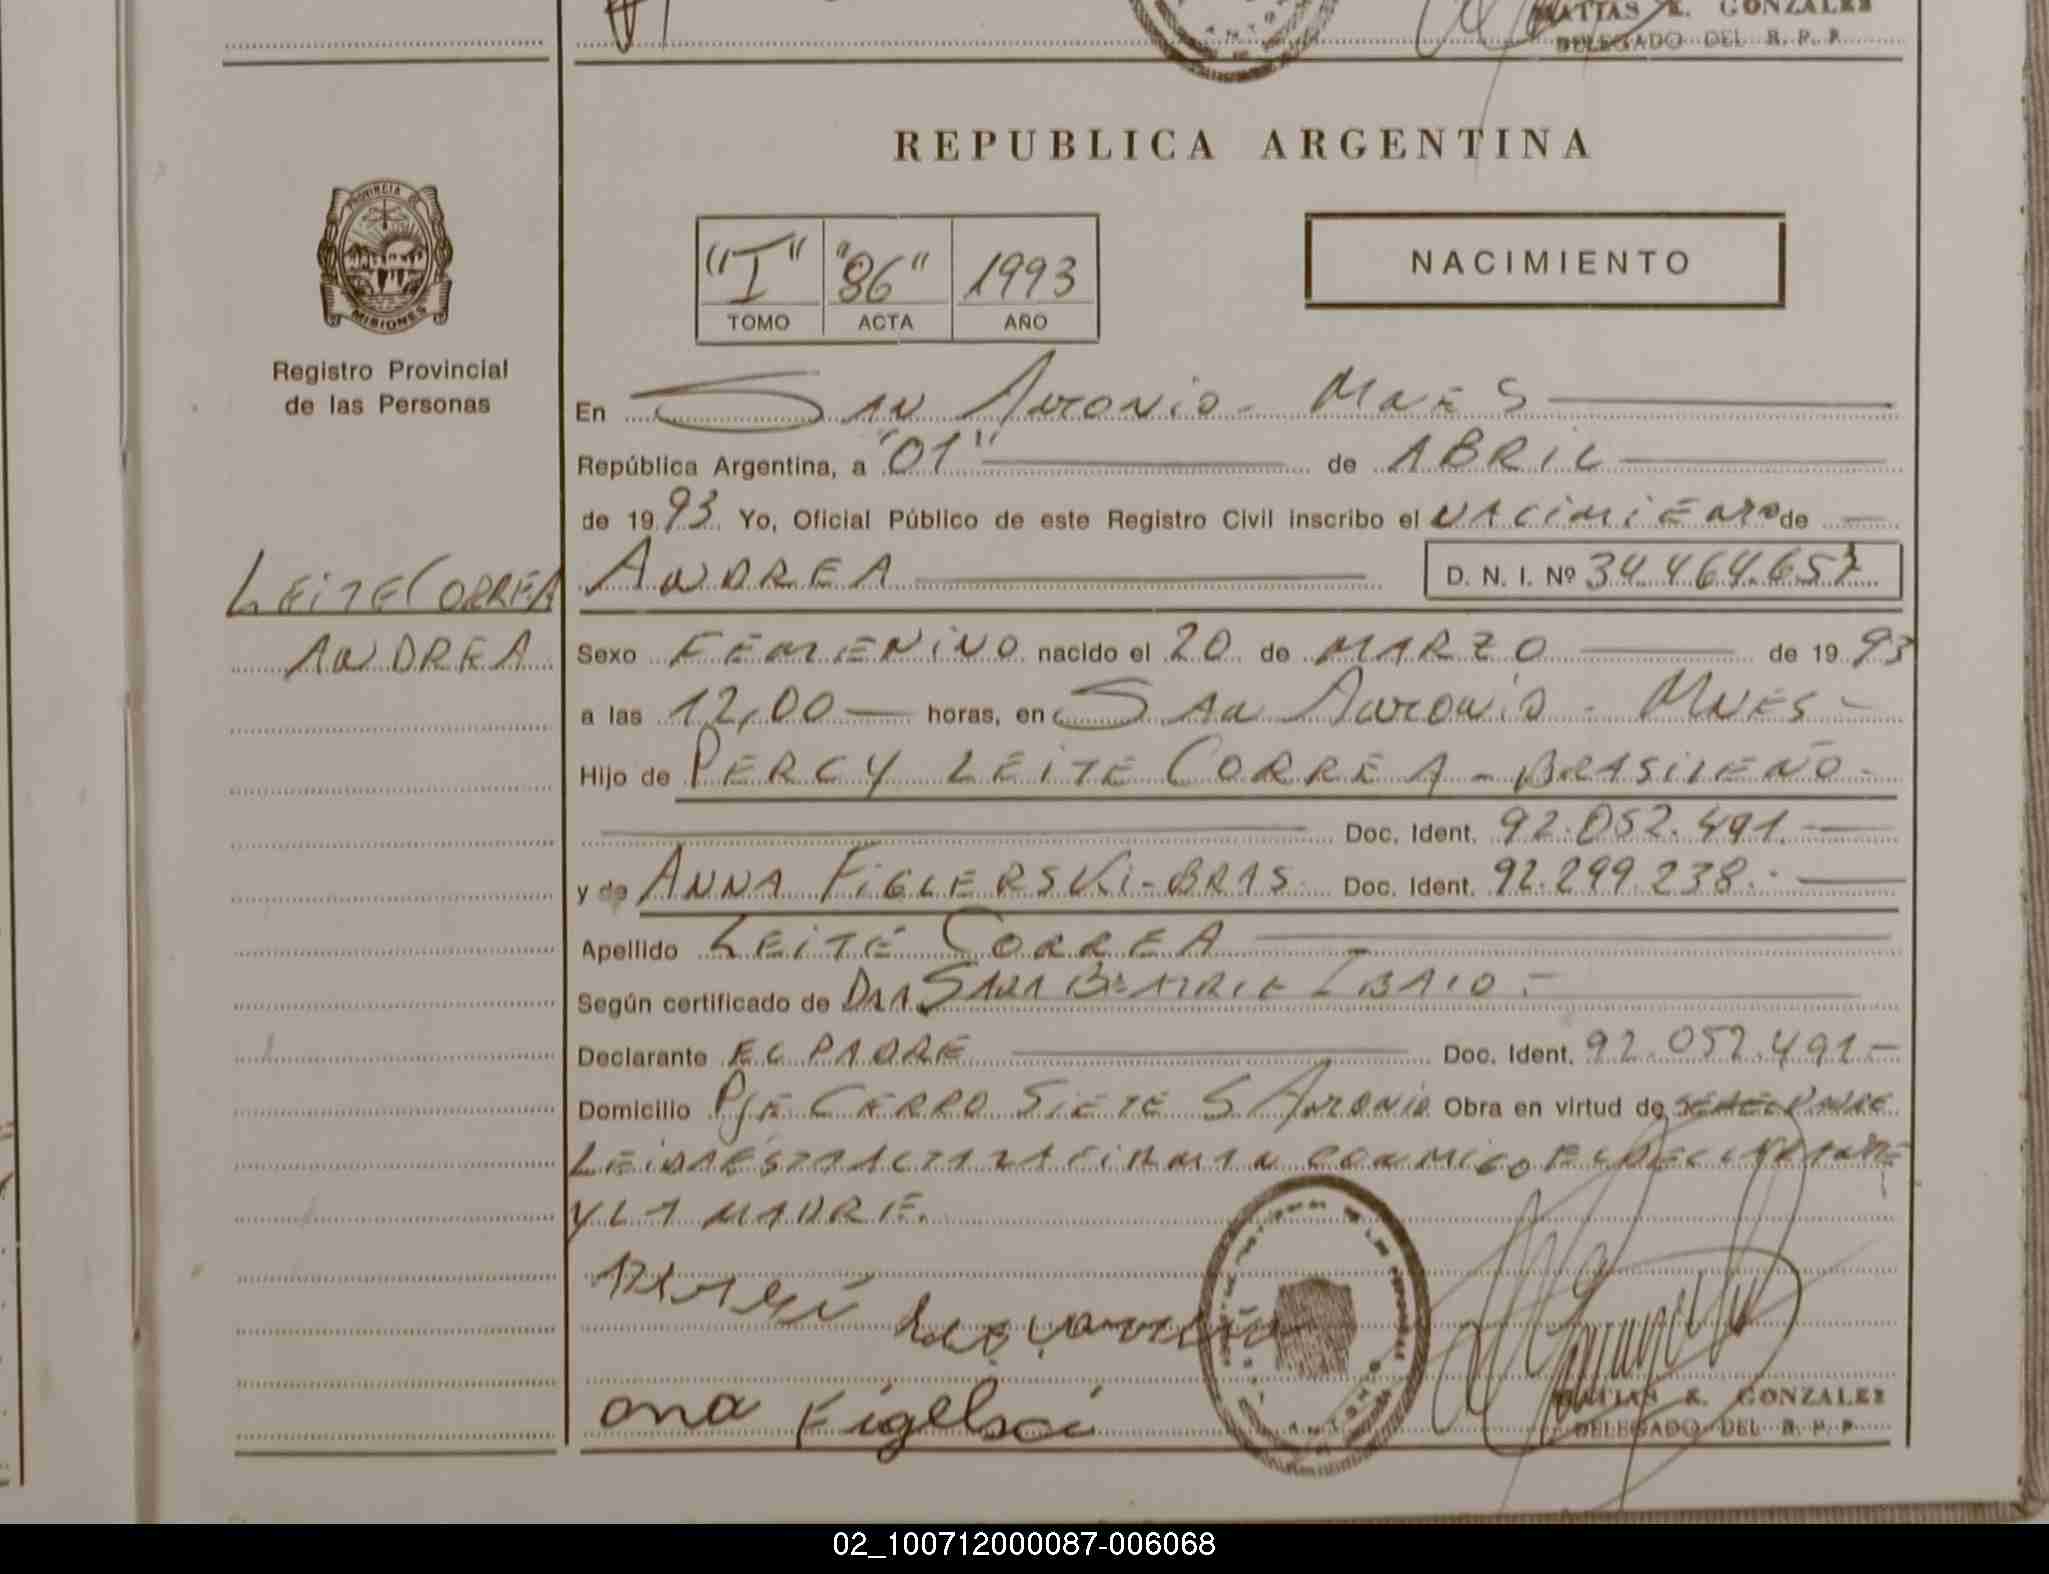 MATIAS R. GONZALEZ
DELEGADO DEL R. P. P.
REPUBLICA ARGENTINA
PROVINCIA DE
MISIONES
Registro Provincial
de las Personas
"I" "86" 1993
TOMO ACTA AÑO
NACIMIENTO
En San Antonio - Mnes
República Argentina, a "01" de ABRIL
de 1993 Yo, Oficial Público de este Registro Civil inscribo el NACIMIENTO de
ANDREA D. N. I. Nº 34.464.657
LEITE CORREA
ANDREA
Sexo FEMENINO nacido el 20 de MARZO de 1993
a las 12,00 horas, en San Antonio - Mnes -
Hijo de PERCY LEITE CORREA - BRASILEÑO -
Doc. Ident. 92.052.491.
y de ANNA FIGLERSKI - BRAS. Doc. Ident. 92.299.238.
Apellido LEITE CORREA
Según certificado de DRA SARA BEATRIZ
Declarante EL PADRE Doc. Ident. 92.052.491 -
Domicilio PJE CERRO SIETE S Antonio Obra en virtud de
LEIDA ESTA ACTA LA FIRMAN CONMIGO EL DECLARANTE
Y LA MADRE.
ona Figelsci
MATIAS R. GONZALEZ
DELEGADO DEL R. P. P.
02_100712000087-006068